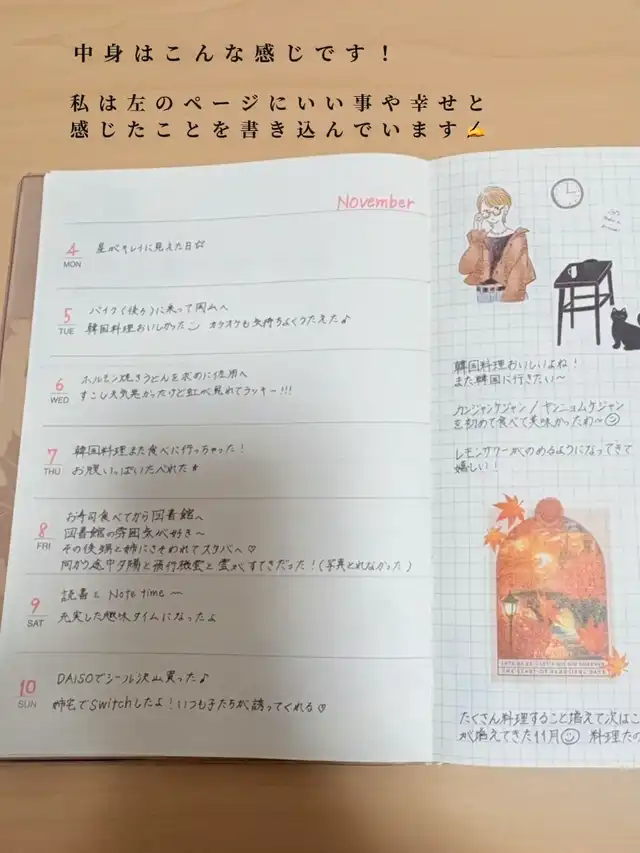 中身はこんな感じです！
私は左のページにいい事や幸せと
感じたことを書き込んでいます✍️
November
4
MON
星がキレイに見えた日☆
5
TUE
バイク(後ろ)に乗って岡山へ
韓国料理おいしかった カラオケも気持ちよくうたえた♪
6
WED
ホルモン焼きうどんを求めに佐用へ
すこし天気悪かったけど虹が見れてラッキー!!!
7
THU
韓国料理また食べに行っちゃった！
お腹いっぱいたべれた★
8
FRI
お寿司食べてから図書館へ
図書館の雰囲気が好き〜
その後 と姉にさそわれてスタバへ♡
向かう途中夕陽と飛行機雲と雲が、すてきだった！(写真とれなかった)
9
SAT
読書と Note time 〜
充実した趣味タイムになったよ
10
SUN
DAISOでシール沢山買った♪
姉宅でSwitchしたよ！いつも子たちが誘ってくれる♡
韓国料理おいしいよね！
また韓国に行きたい〜
カンジャンケジャン / ヤンニョムケジャン
を初めて食べて美味かったわ〜☺
レモンサワーがのめるようになってきて
嬉しい！
たくさん料理すること増えて次はこ
が増えてきた11月☺ 料理たの